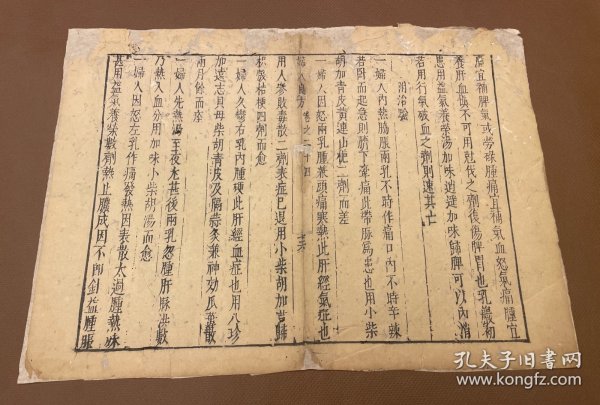 應宜補脾氣或勞碌腫痛宜補氣血怒氣痛腫宜
養肝血慎不可用尅伐之劑復傷脾胃也乳巖初
患用益氣養榮湯加味逍遙加味歸脾可以內消
若用行氣破血之劑則速其亡
附治驗
一婦人內熱脇脹兩乳不時作痛口內不時辛辣
若臥而起急則臍下牽痛此帶脈爲患也用小柴
胡加青皮黃連山梔二劑而差
一婦人因怒兩乳腫兼頭痛寒熱此肝經氣症也
婦人良方 卷之二十四
用人參敗毒散二劑表症已退用小柴胡加芎歸
枳殼桔梗四劑而愈
一婦人久鬱右乳內腫硬此肝經血症也用八珍
加遠志貝母柴胡青皮及隔蒜灸兼神効瓜蔞散
兩月餘而痊
一婦人先熱渴至夜尤甚後兩乳忽腫肝脈洪數
乃熱入血分用加味小柴胡湯而愈
一婦人因怒左乳作痛發熱因表散太過腫熱
甚用益氣養榮數劑熱止膿成因不即針益腫脹
孔夫子旧書网
www.kongfz.com